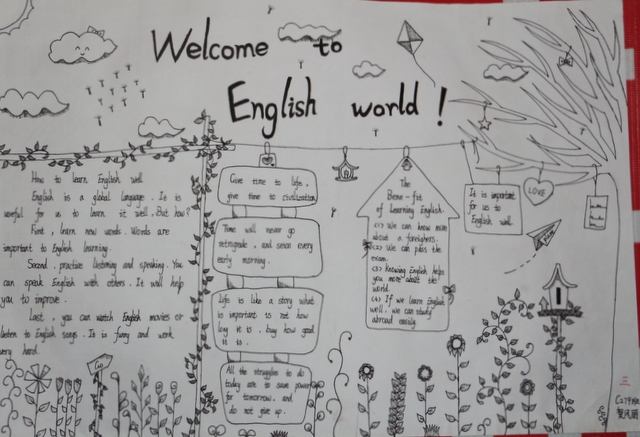 Welcome to
English world!
How to learn English well
English is a global language. It is
useful for us to learn it well. But how?
First, learn new words. Words are
important to English learning.
Second, practice listening and speaking. You
can speak English with others. It will help
you to improve.
Last, you can watch English movies or
listen to English songs. It is funny and work
very hard.
Go
Give time to life,
give time to civilization
Time will never go
retrograde, and seven every
early morning.
Life is like a story what
is important is not how
long it is, buy how good
it is.
All the struggles to do
today are to save power
for tomorrow. and
do not give up.
The
Bene-fit
of Learning English.
(1) We can know more
about a foreigners.
(2) We can pass the
exam.
(3) Knowing English helps
you more about the
world.
(4) If we learn English
well. we can study
abroad easily.
It is important
for us to
English well.
LOVE
三